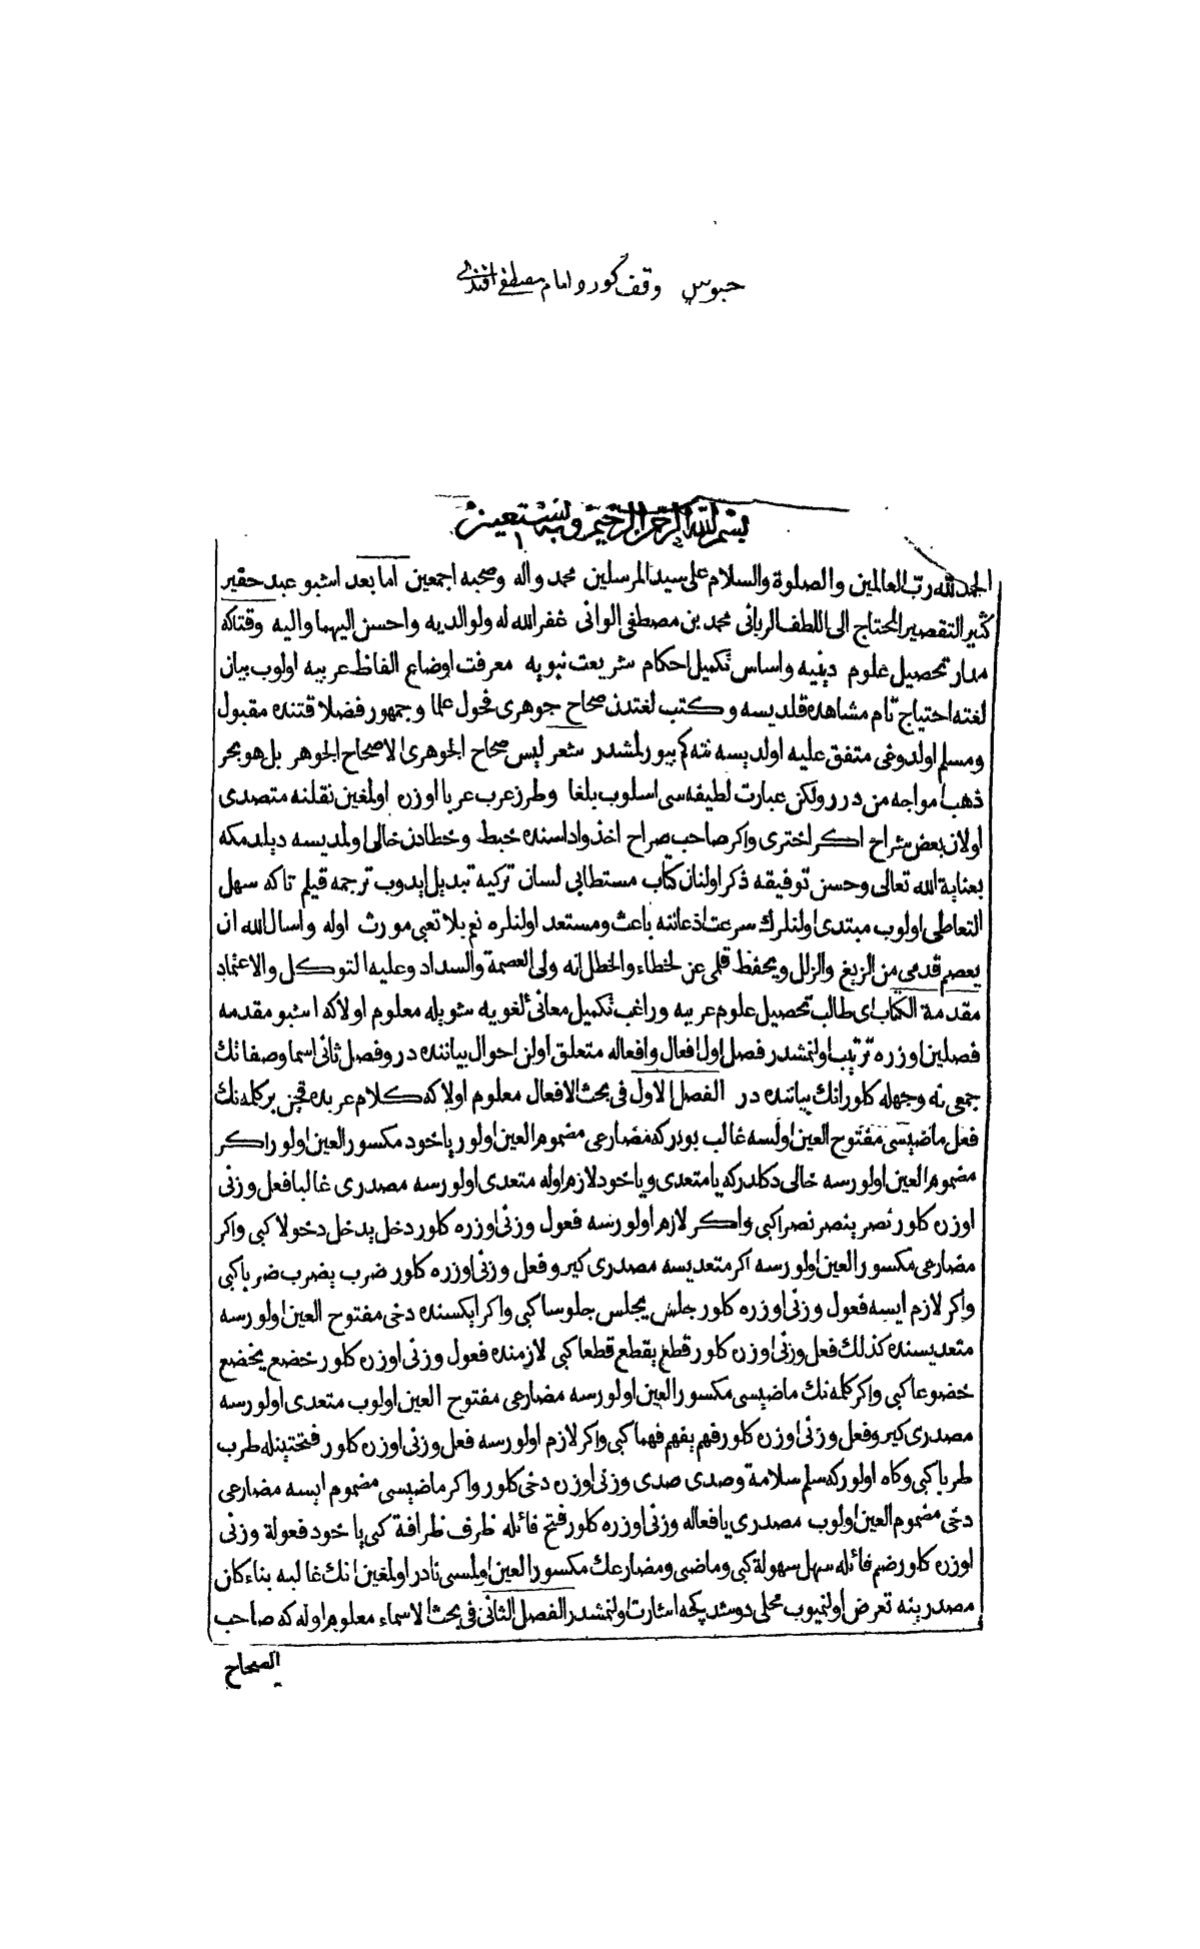 حبوس وقف كورد امام مصطفى افندى
بسم الله الرحمن الرحيم وبه نستعين
الحمد لله رب العالمين والصلوة والسلام على سيد المرسلين محمد واله وصحبه اجمعين اما بعد اشبو عبد حقير
كثير التقصير المحتاج الى اللطف الربانى محمد بن مصطفى الوانى غفر الله له ولوالديه واحسن اليهما واليه وقتاكه
مدار تحصيل علوم دينيه واساس تكميل احكام شريعت نبويه معرفت اوضاع الفاظ عربيه اولوب بيان
لغته احتياج تام مشاهده قلديسه وكتب لغتدن صحاح جوهرى فحول علما وجمهور فضلا قتنده مقبول
ومسلم اولدوغى متفق عليه اولديسه نته كم بيورلمشدر شعر ليس صحاح الجوهرى الا صحاح الجوهر بل هو بحر
ذهب امواجه من درر ولكن عبارت لطيفه سى اسلوب بلغا وطرز عرب عربا اوزره اولمغين نقلنه متصدى
اولان بعض شراح اكر اخترى واكر صاحب صراح اخذ واداسنده خبط وخطادن خالى اولمديسه ديلدمكه
بعناية الله تعالى وحسن توفيقه ذكر اولنان كتاب مستطابى لسان تركيه تبديل ايدوب ترجمه قيلم تا كه سهل
التعاطى اولوب مبتدى اولنلرك سرعت اذعاننه باعث ومستعد اولنلره نعم بلا تعبى مورث اوله واسال الله ان
يعصم قدمى من الزيغ والزلل ويحفظ قلمى عن الخطاء والخطل انه ولى العصمة والسداد وعليه التوكل والاعتماد
مقدمة الكتاب اى طالب تحصيل علوم عربيه وراغب تكميل معانئ لغويه شويله معلوم اولا كه اشبو مقدمه
فصلين اوزره ترتيب اولنمشدر فصل اول افعال وافعاله متعلق اولن احوال بياننده در وفصل ثانى اسما وصفاتك
جمعى نه وجهله كلور انك بياننده در الفصل الاول فى بحث الافعال معلوم اولا كه كلام عربده قچن بر كلمه نك
فعل ماضيسى مفتوح العين اولسه غالب بودر كه مضارعى مضموم العين اولور ياخود مكسور العين اولور اكر
مضموم العين اولورسه خالى دكلدر كه يا متعدى ويا خود لازم اوله متعدى اولورسه مصدرى غالبا فعل وزنى
اوزره كلور نصر ينصر نصرا كبى واكر لازم اولورسه فعول وزنى اوزره كلور دخل يدخل دخولا كبى واكر
مضارعى مكسور العين اولورسه اكر متعديسه مصدرى كيرو فعل وزنى اوزره كلور ضرب يضرب ضربا كبى
واكر لازم ايسه فعول وزنى اوزره كلور جلس يجلس جلوسا كبى واكر ايكسنده دخى مفتوح العين اولورسه
متعديسنده كذلك فعل وزنى اوزره كلور قطع يقطع قطعا كبى لازمنده فعول وزنى اوزره كلور خضع يخضع
خضوعا كبى واكر كلمه نك ماضيسى مكسور العين اولورسه مضارعى مفتوح العين اولوب متعدى اولورسه
مصدرى كيرو فعل وزنى اوزره كلور فهم يفهم فهما كبى واكر لازم اولورسه فعل وزنى اوزره كلور فتحتينله طرب
طربا كبى وكاه اولور كه سلم سلامة وصدى صدى وزنى اوزره دخى كلور واكر ماضيسى مضموم ايسه مضارعى
دخى مضموم العين اولوب مصدرى يا فعاله وزنى اوزره كلور فتح فائله ظرف ظرافة كبى ياخود فعولة وزنى
اوزره كلور ضم فائله سهل سهولة كبى وماضى ومضارعك مكسور العين اولمسى نادر اولمغين انك غالبه بناء كان
مصدرينه تعرض اولنميوب محلى دوشدپكجه اشارت اولنمشدر الفصل الثانى فى بحث الاسماء معلوم اوله كه صاحب
الصحاح